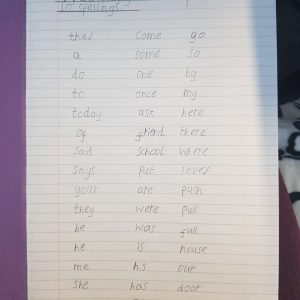 to spellings
the come go
a some so
do one by
to once my
today ask here
of friend there
said school where
says put love
your are push
they were pull
be was full
he is house
me his our
she has door